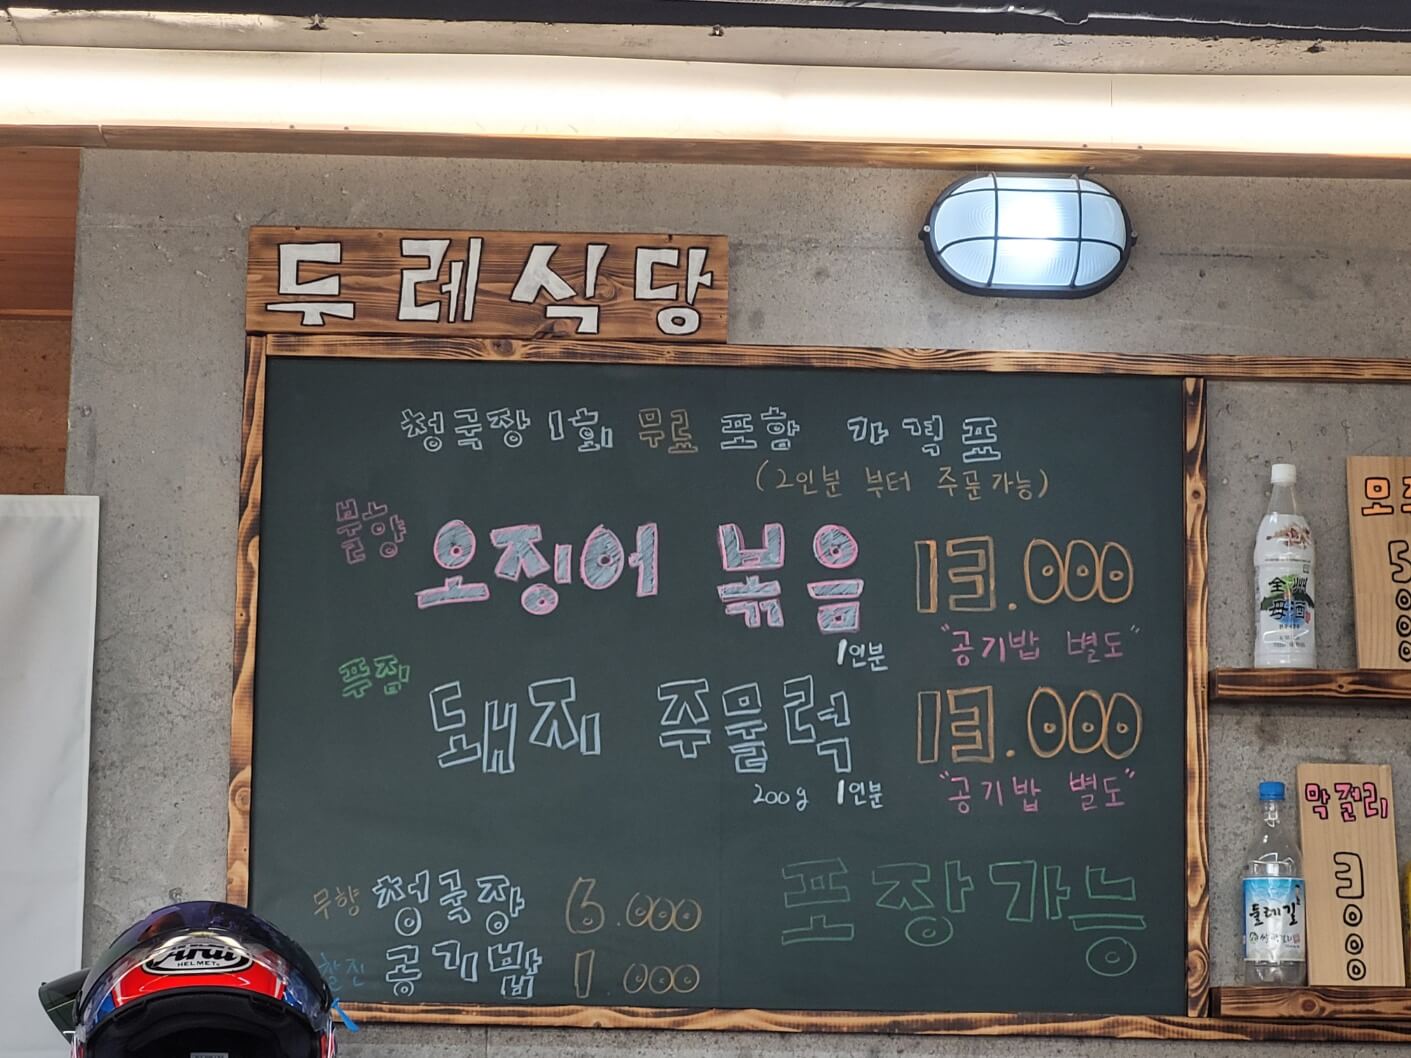 두레식당
청국장 1회 무료 포함 가격표
(2인분 부터 주문가능)
불향 오징어 볶음 13.000
1인분 "공기밥 별도"
푸짐 돼지 주물럭 13.000
200g 1인분 "공기밥 별도"
무향 청국장 6.000
찰진 공기밥 1 000
포장가능
5000
막걸리
3000
둘레길
Arai
HELMET